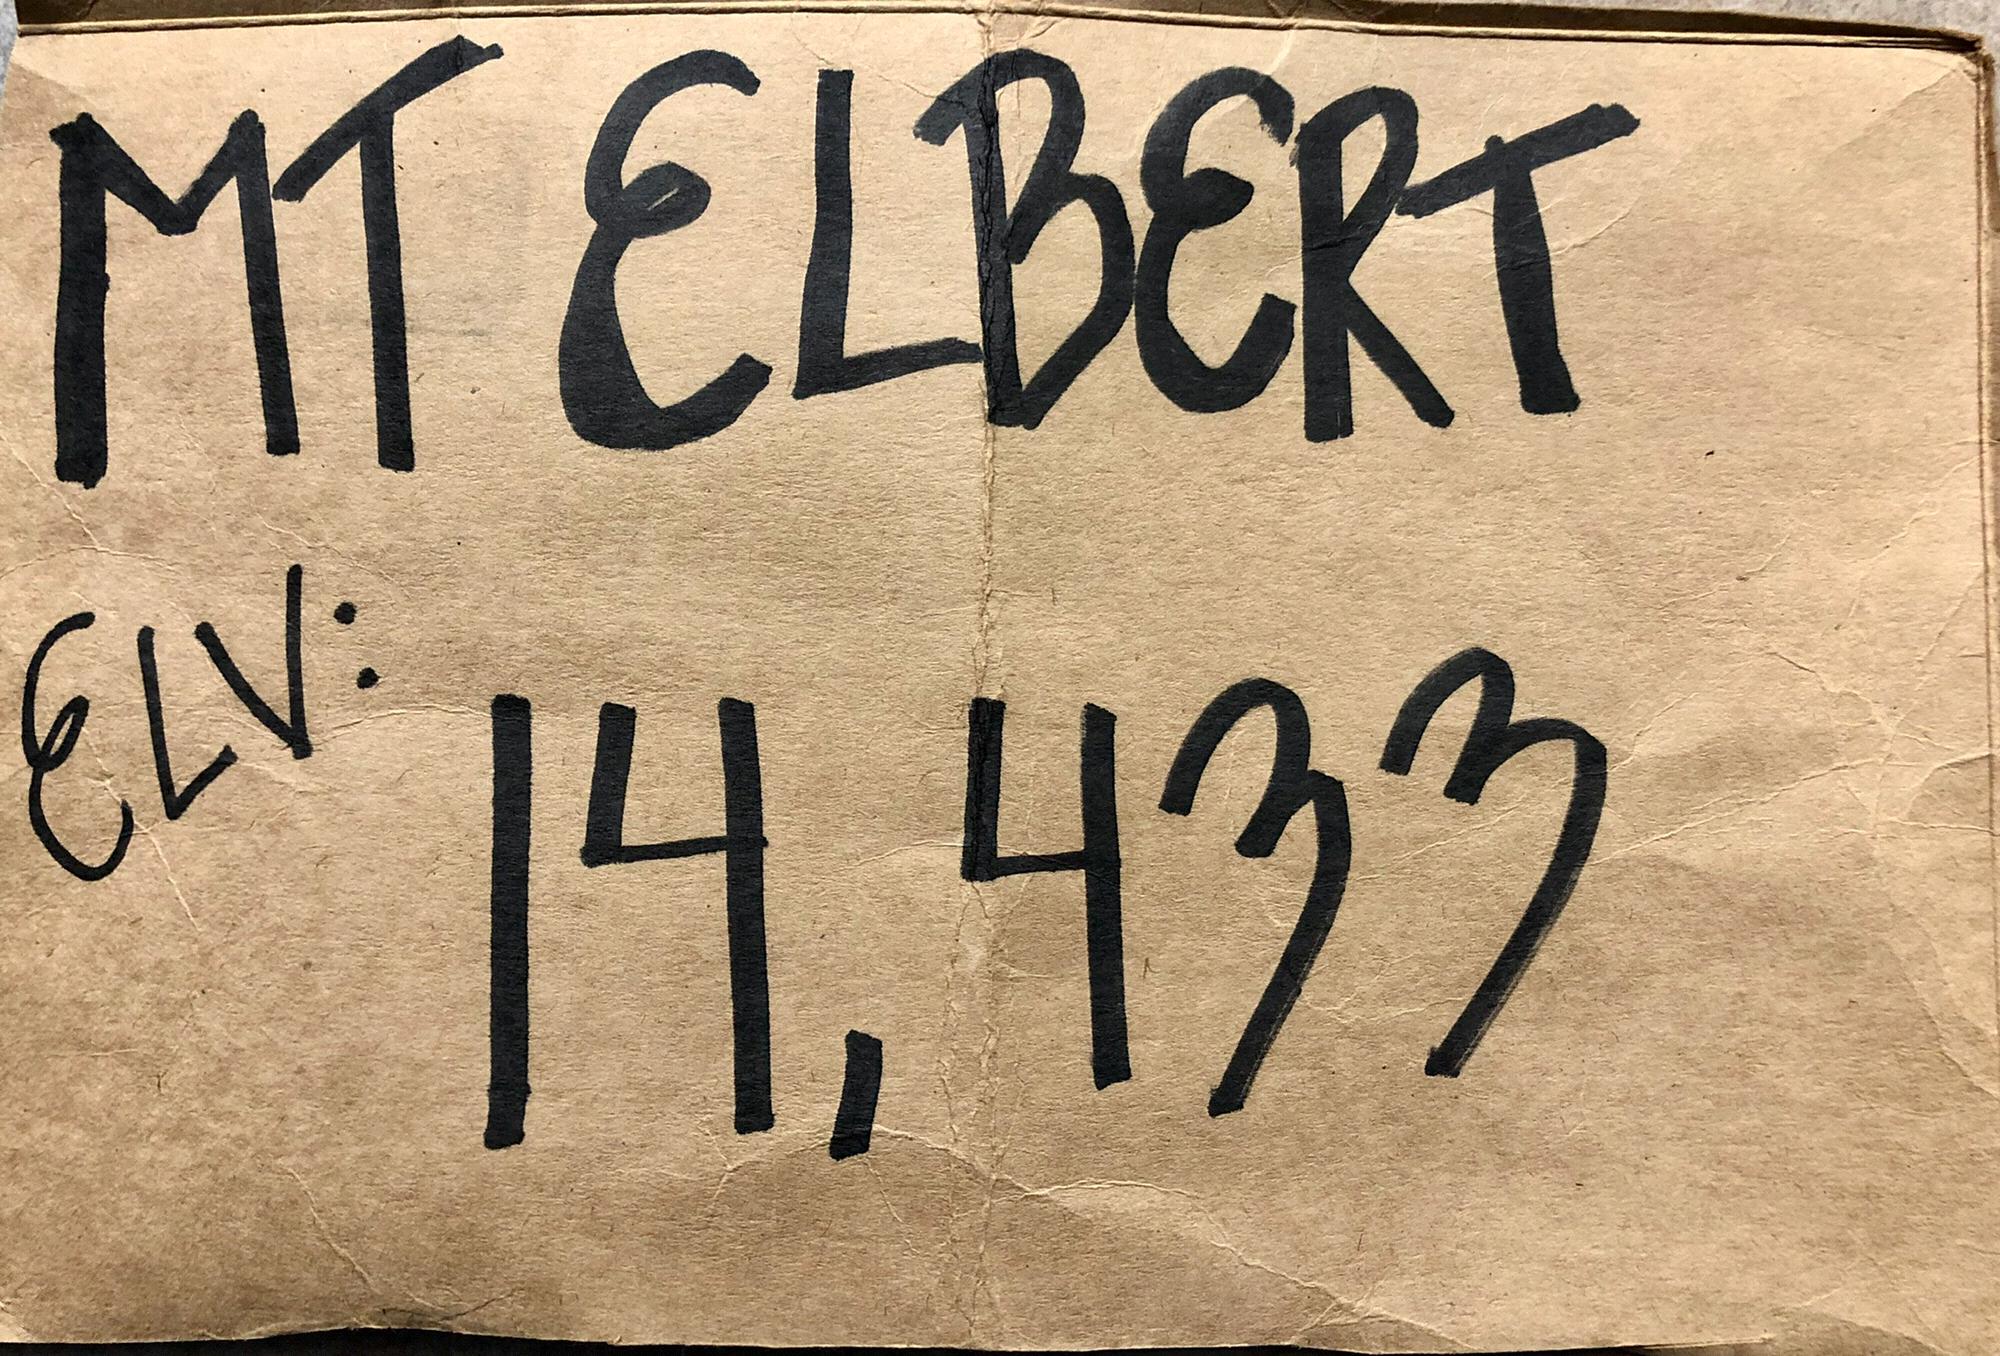 MT ELBERT
ELV:
14,433